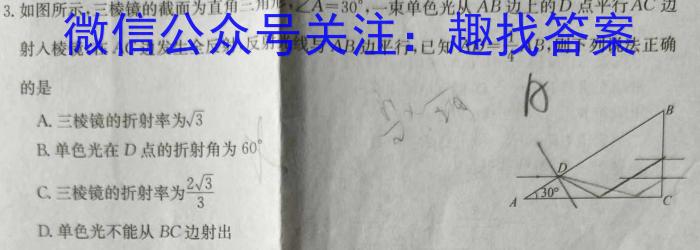 3. 如图所示,三棱镜的截面为直角三角形,∠A=30°,一束单色光从AB边上的D点平行AC边
射入棱镜 反射 线与AB边平行,已知 下列说法正确
微信公众号关注：趣找答案
的是
A. 三棱镜的折射率为√3
B. 单色光在D点的折射角为60°
C. 三棱镜的折射率为2√3/3
D. 单色光不能从BC边射出
B
D
30°
A
C